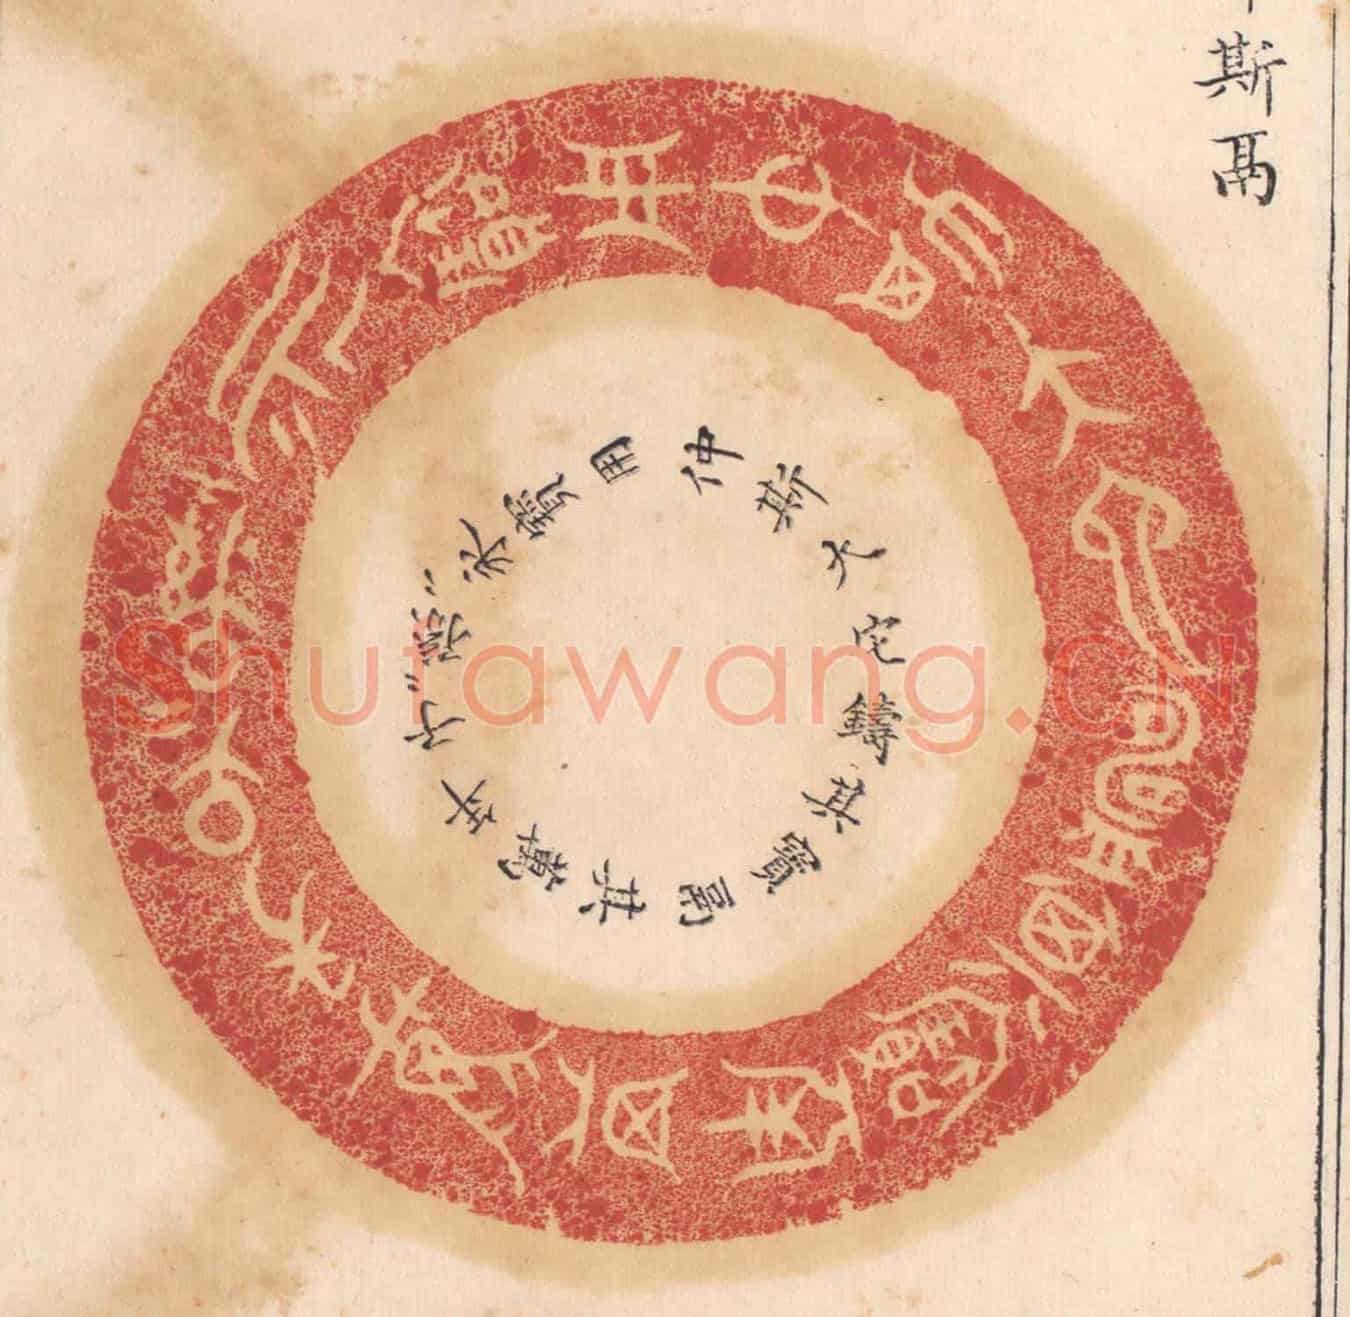 斯鬲
仲斯大它鑄其寶鬲其萬年子〻孫〻永寶用
Shutawang.CN